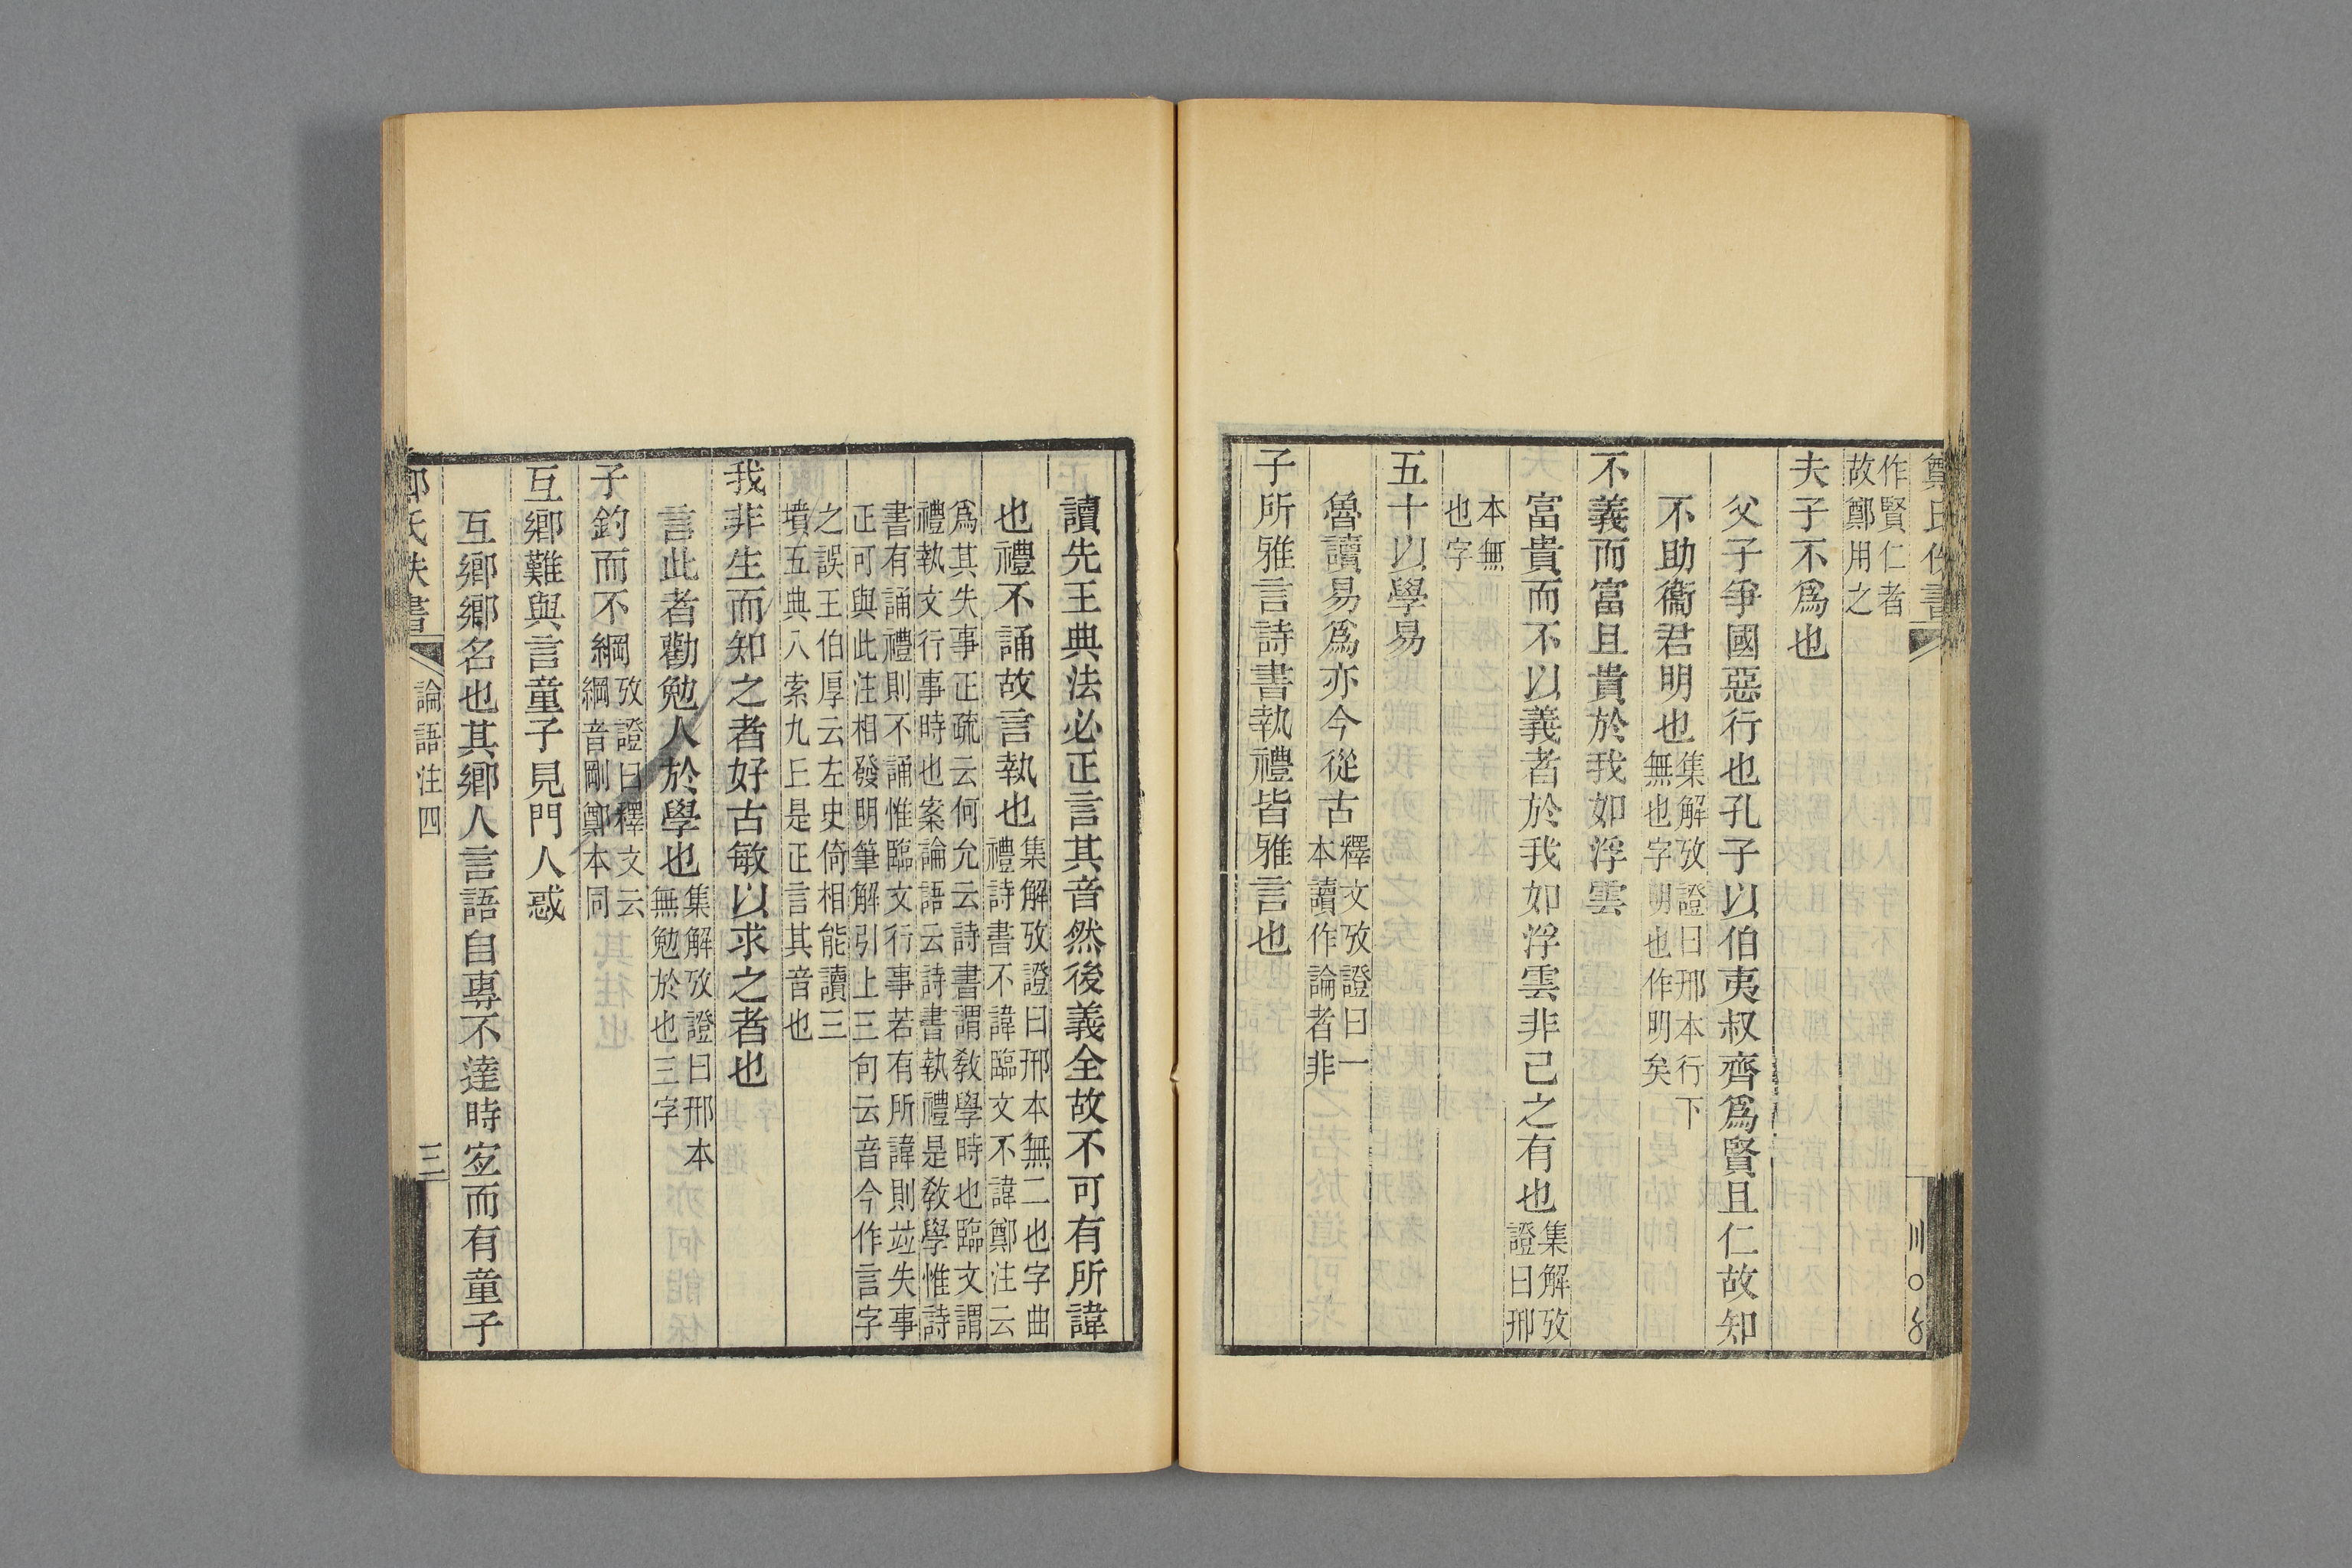 鄭氏佚書
作賢仁者
故鄭用之
夫子不爲也
父子爭國惡行也孔子以伯夷叔齊爲賢且仁故知
不助衞君明也集解攷證曰邢本行下
無也字明也作明矣
不義而富且貴於我如浮雲
富貴而不以義者於我如浮雲非己之有也集解攷
證曰邢
本無
也字
五十以學易
魯讀易爲亦今從古釋文攷證曰一
本讀作論者非
子所雅言詩書執禮皆雅言也
讀先王典法必正言其音然後義全故不可有所諱
也禮不誦故言執也集解攷證曰邢本無二也字曲
禮詩書不諱臨文不諱鄭注云
爲其失事正疏云何允云詩書謂敎學時也臨文謂
禮執文行事時也案論語云詩書執禮是敎學惟詩
書有誦禮則不誦惟臨文行事若有所諱則竝失事
正可與此注相發明筆解引上三句云音今作言字
之誤王伯厚云左史倚相能讀三
墳五典八索九㐀是正言其音也
我非生而知之者好古敏以求之者也
言此者勸勉人於學也集解攷證曰邢本
無勉於也三字
子釣而不綱攷證曰釋文云
綱音剛鄭本同
互鄉難與言童子見門人惑
互鄉鄉名也其鄉人言語自專不達時宐而有童子
鄭氏佚書
論語注四
三